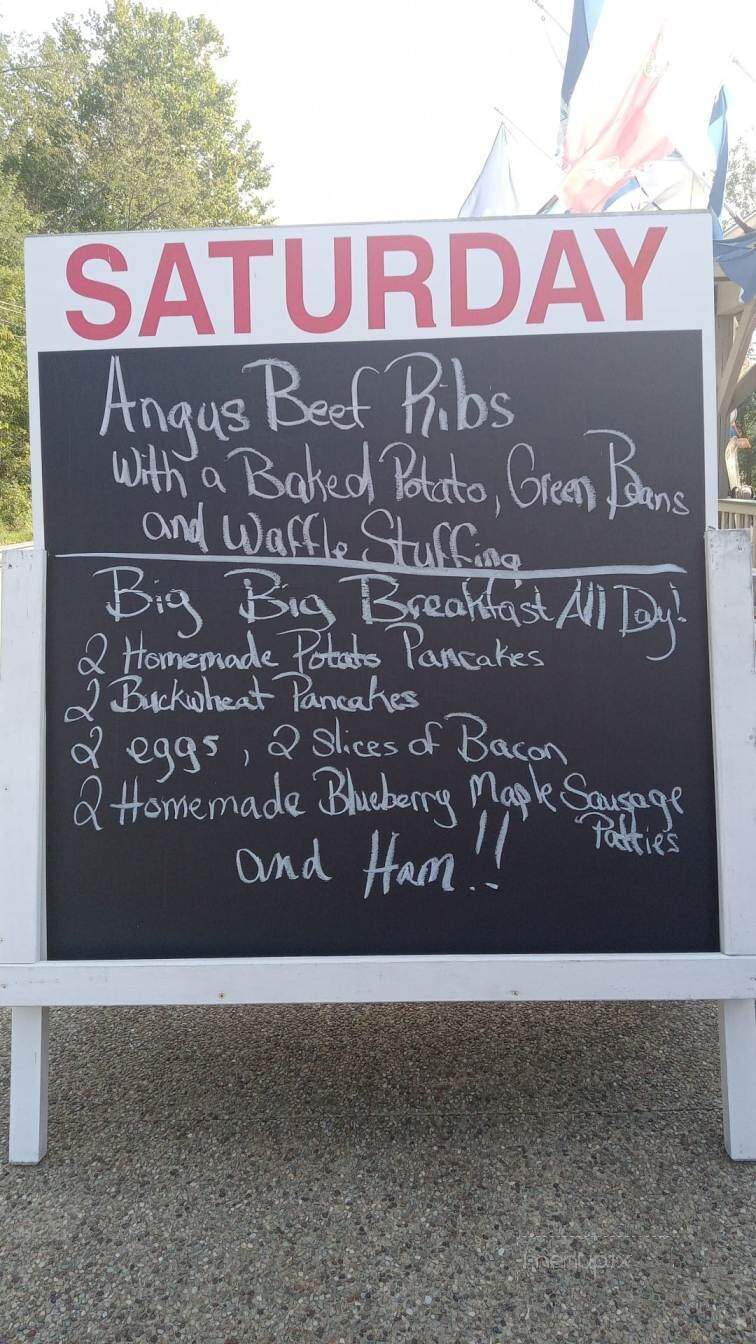 SATURDAY
Angus Beef Ribs
With a Baked Potato, Green Beans
and Waffle Stuffing
Big Big Breakfast All Day!
2 Homemade Potato Pancakes
2 Buckwheat Pancakes
2 eggs, 2 Slices of Bacon
2 Homemade Blueberry Maple Sausage
Patties
and Ham!!
menupix